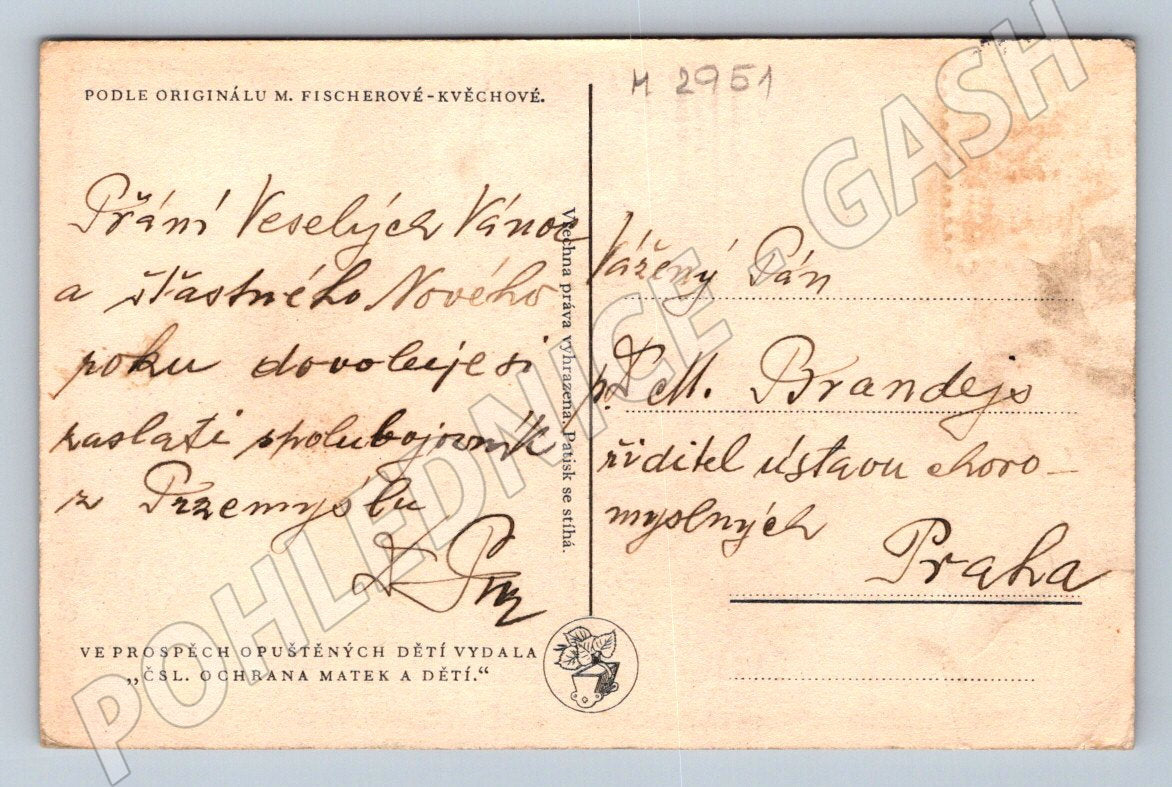 PODLE ORIGINÁLU M. FISCHEROVÉ-KVĚCHOVÉ.
M 2951
Přání Veselých Vánoc
a šťastného Nového
roku dovoluje si
zaslati spolubojovník
z Przemyślu
VE PROSPĚCH OPUŠTĚNÝCH DĚTÍ VYDALA
„ČSL. OCHRANA MATEK A DĚTÍ.“
Všechna práva vyhrazena. Patisk se stíhá.
Vážený Pán
p. Dr M. Brandejs
řiditel ústavu choro-
myslných
Praha
POHLEDNICE - GASH